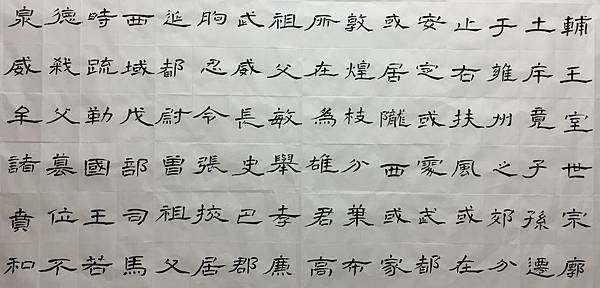 輔王室世宗廓
土斥竟子孫遷
于雍州之郊分
止右扶風或在
安定或處武都
或居隴西或家
敦煌枝分葉布
所在為雄君高
祖父敏舉孝廉
武威長史巴郡
朐忍令張掖居
延都尉曾祖父
西域戊部司馬
時疏勒國王若
德殺父篡位不
泉威牟諸賁和